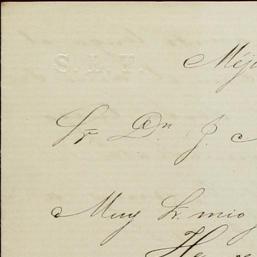 S. L. F.
Méji
Sr Dn J.
Muy Sr. mio